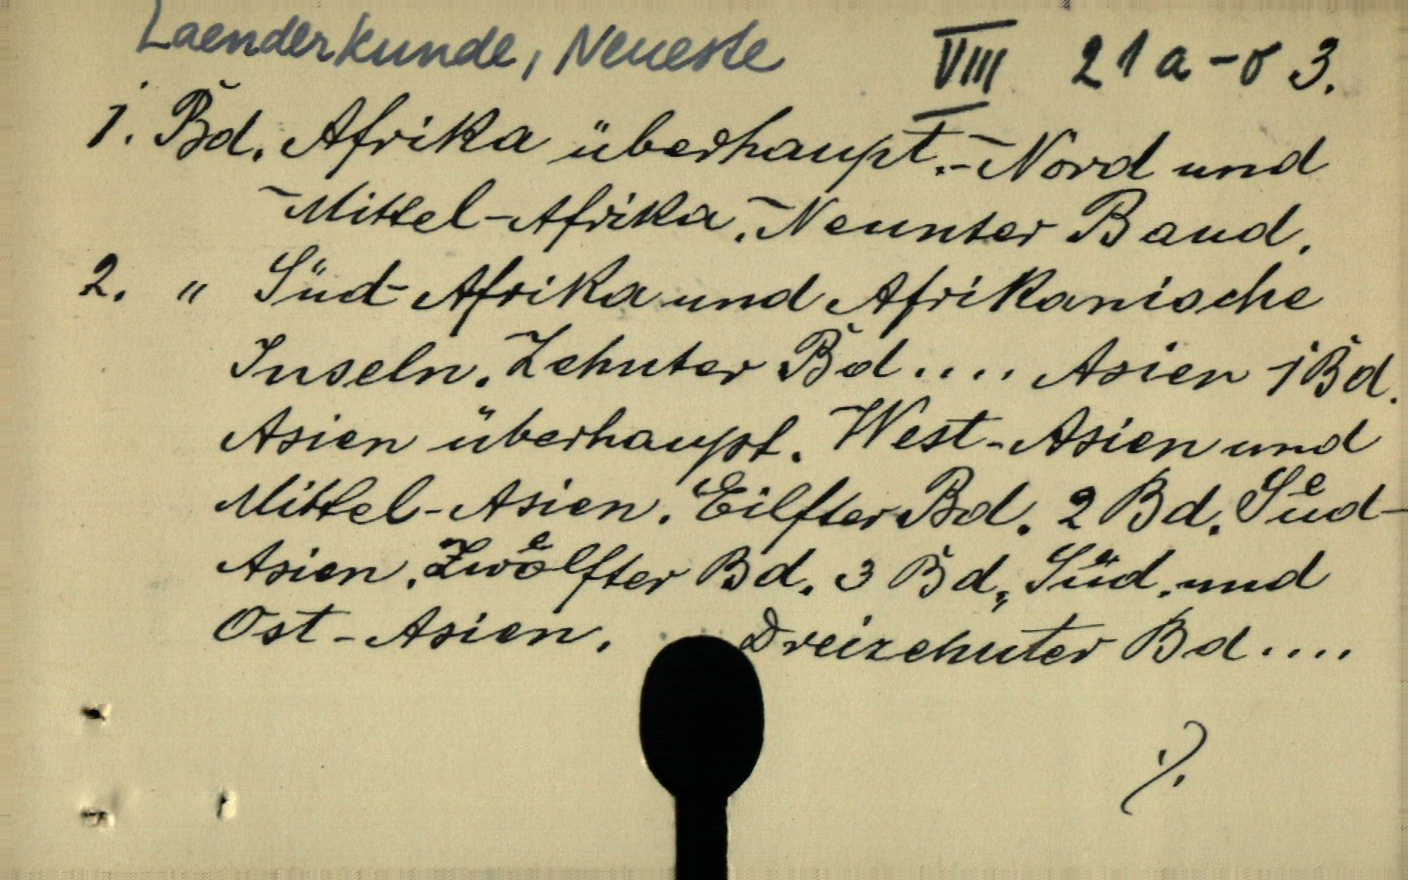 Laenderkunde, Neueste VIII 21a-o 3.
1. Bd. Afrika überhaupt.-Nord und
Mittel-Afrika. Neunter Band.
2. " Süd-Afrika und Afrikanische
Inseln. Zehnter Bd.... Asien 1 Bd.
Asien überhaupt. West-Asien und
Mittel-Asien. Eilfter Bd. 2 Bd. Suͤd-
Asien. Zwoͤlfter Bd. 3 Bd. Suͤd. und
Ost-Asien. Dreizehnter Bd....
./.